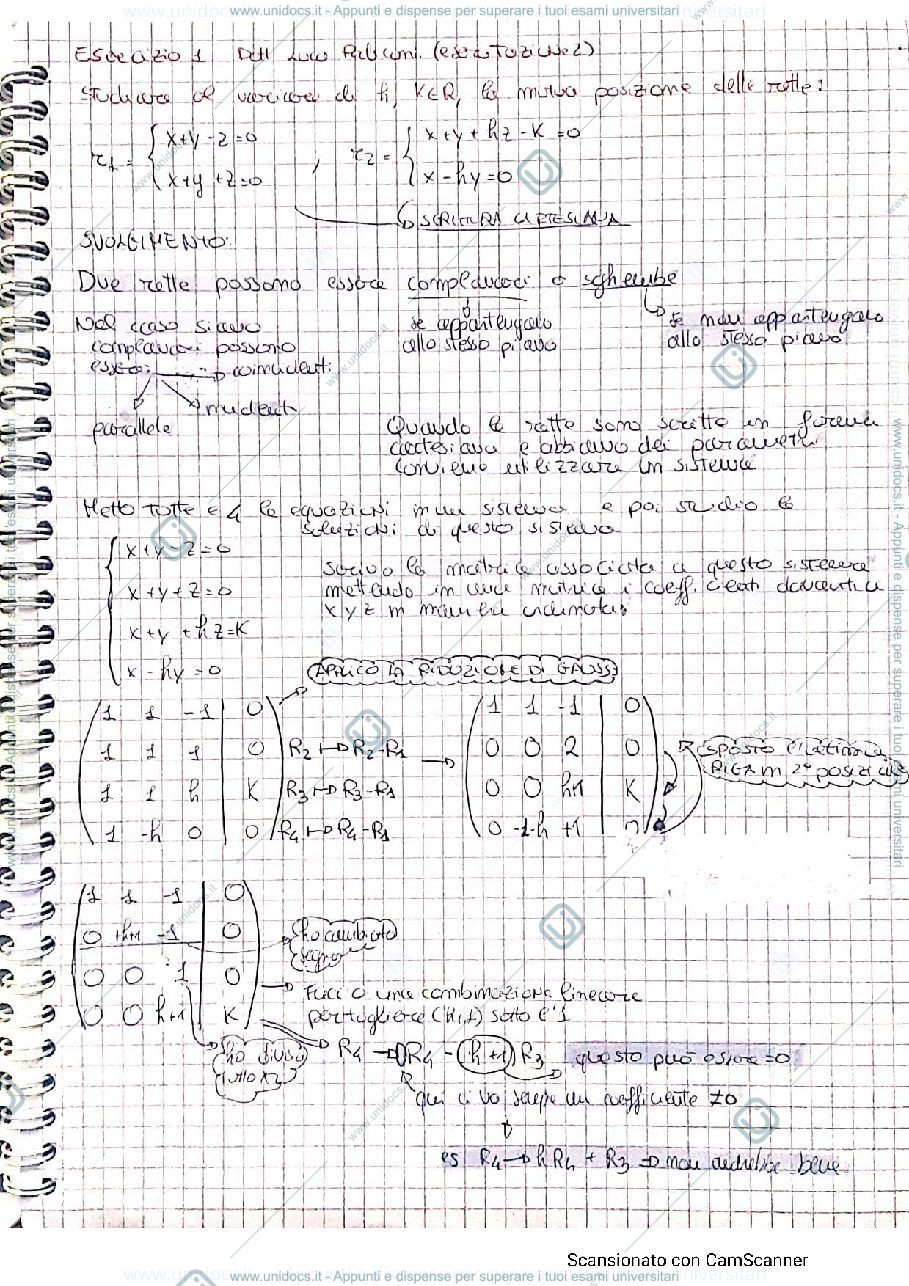 www.unidocs.it - Appunti e dispense per superare i tuoi esami universitari
Esercizio 1 Dott Luca (esercitazione 2)
Studiare al variare di h, K∈R, la mutua posizione delle rette:
r1 = { x+y-z=0 , r2 = { x+y+hz-K=0
x+y+z=0 x-hy=0
SCRITTURA CARTESIANA
SVOLGIMENTO
Due rette possono essere complanari o sghembe
Nel caso siano
complanari possono
essere: coincidenti
parallele incidenti
se appartengono
allo stesso piano
se non appartengono
allo stesso piano
Quando le rette sono scritte in forma
cartesiana e abbiamo dei parametri
conviene utilizzare un sistema
Metto tutte e 4 le equazioni in un sistema e poi studio le
soluzioni di questo sistema
x+y-z=0
x+y+z=0
x+y+hz=K
x-hy=0
scrivo la matrice associata a questo sistema
mettendo in una matrice i coefficienti davanti a
x y z in maniera ordinata
APPLICO LA RIDUZIONE DI GAUSS
1 1 -1 | 0
1 1 1 | 0 R2→R2-R1
1 1 h | K R3→R3-R1
1 -h 0 | 0 R4→R4-R1
1 1 -1 | 0
0 0 2 | 0
0 0 h+1 | K
0 -1-h +1 | 0
sposto l'ultima
RIGA in 2ª posizione
1 1 -1 | 0
0 +h+1 -1 | 0
0 0 1 | 0
0 0 h+1 | K
ho cambiato
segno
Faccio una combinazione lineare
per togliere (h+1) sotto l'1
ho diviso
tutto x2
R4 → R4 - (h+1) R3 questo può essere =0
qui ci va sempre un coefficiente ≠0
es R4→hR4 + R3 ⇒ non andrebbe bene
Scansionato con CamScanner
www.unidocs.it - Appunti e dispense per superare i tuoi esami universitari